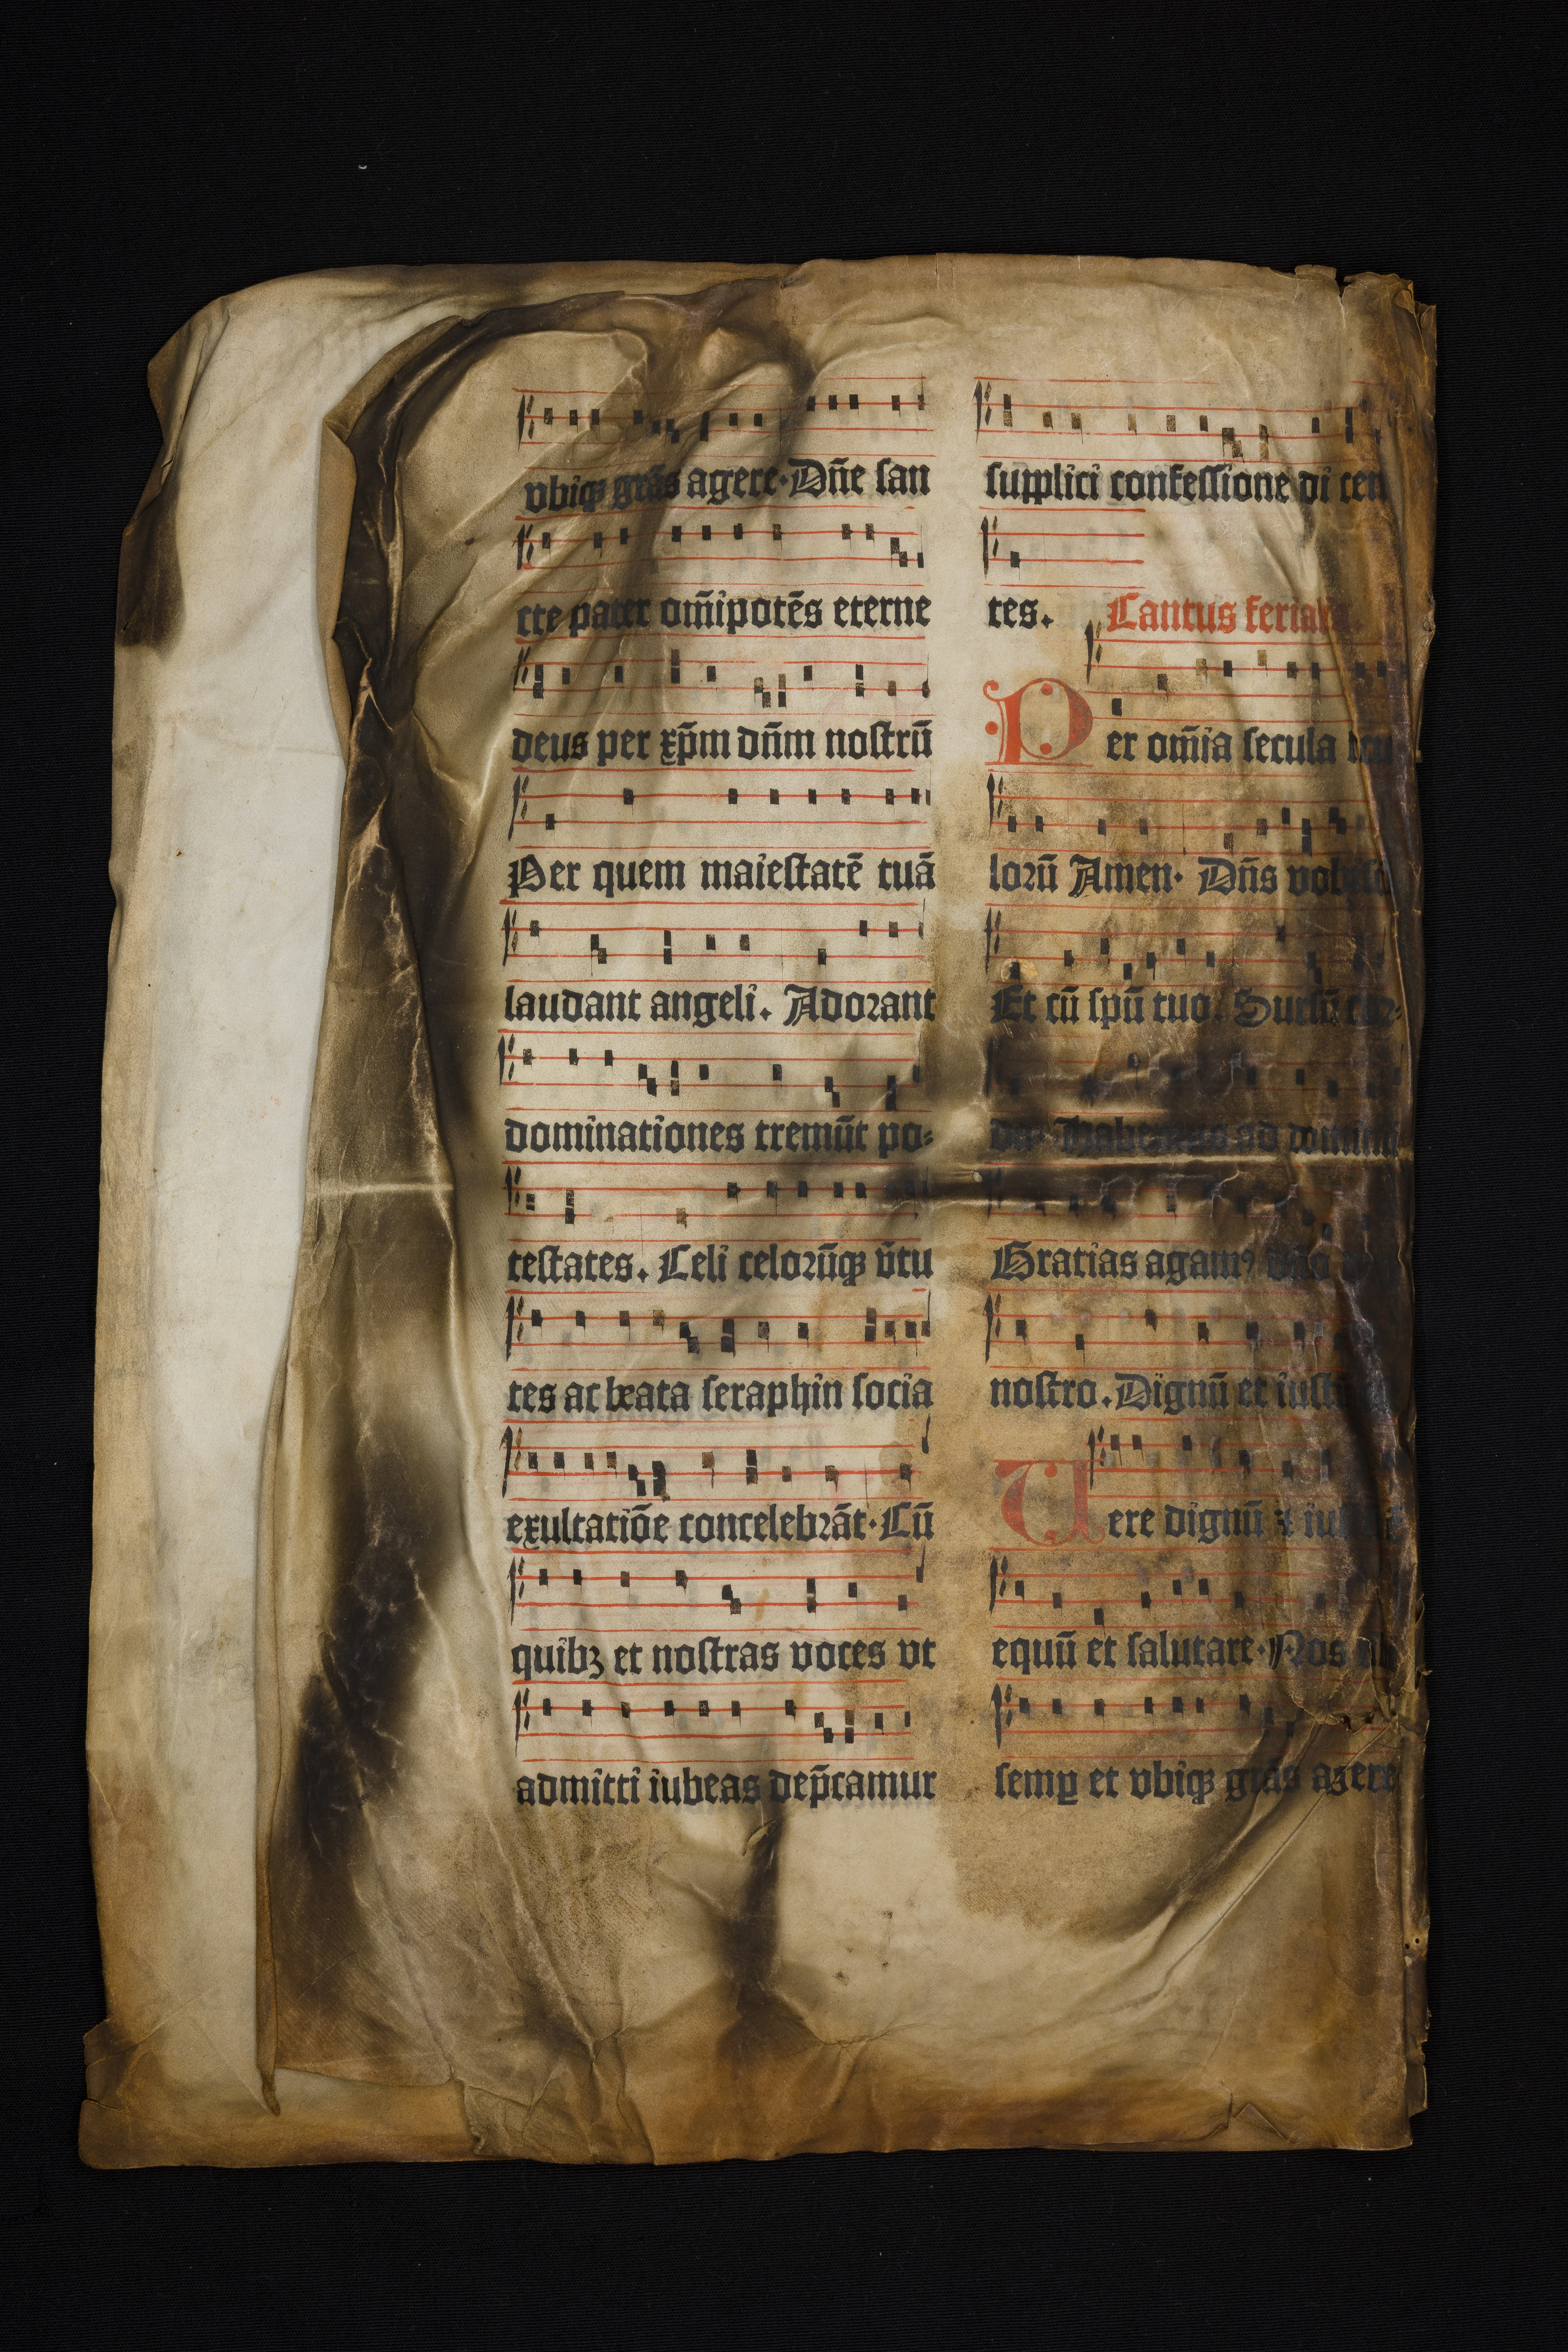 vbiqꝫ grãs agere· Dñe san
cte pater om̃ipotẽs eterne
deus per xp̃m dñm nostrũ
Per quem maiestatẽ tuã
laudant angeli. Adorant
dominationes tremũt po-
testates. Celi celorũqꝫ ṽtu
tes ac beata seraphin socia
exultatiõe concelebrãt· Cũ
quibꝫ et nostras voces vt
admitti iubeas dep̃camur
supplici confessione di cen
tes. Cantus ferialis.
Per om̃ia secula
lorũ Amen· Dñs vobis
Et cũ spũ tuo. Sursũ cor-
da. Habemus ad
Gratias agamꝰ dño
nostro. Dignũ et iustũ
Uere dignũ ⁊
equũ et salutare· Nos
semꝑ et vbiqꝫ grãs agere